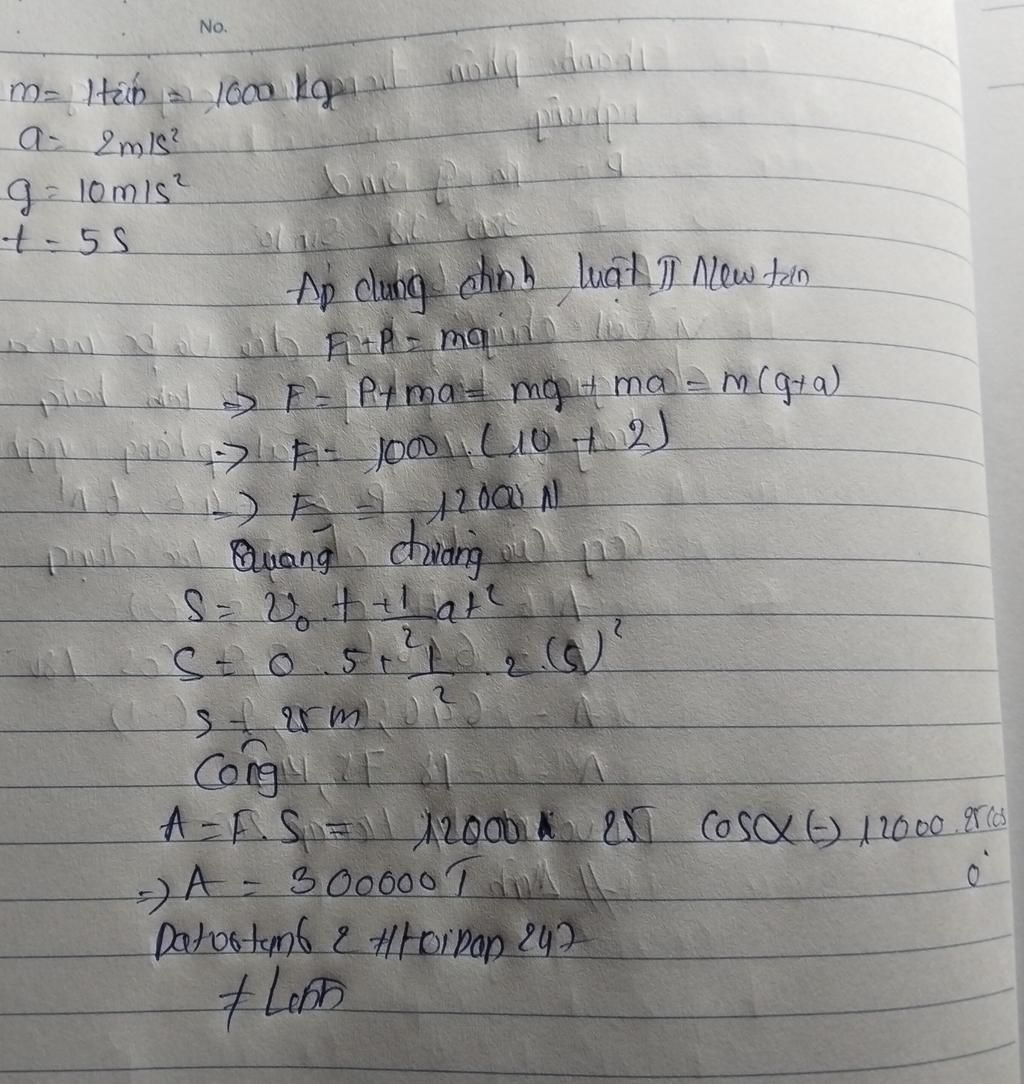 No.
m = 1tấn = 1000 kg
a = 2m/s²
g = 10m/s²
t = 5s
Áp dụng định luật II Newton
F + P = ma
=> F = P + ma = mg + ma = m(g+a)
=> F = 1000 . (10 + 2)
=> F = 12000 N
Quãng đường
S = v₀.t + 1/2 at²
S = 0.5 + 1/2 . 2.(5)²
S = 25 m
Công
A = F.S = 12000 . 25 cosα (=) 12000.25 cos
0°
=> A = 300000J